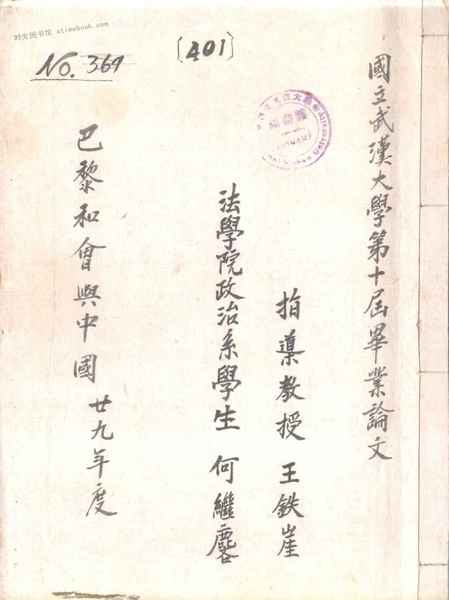 时光图书馆 atimebook.com
〔401〕
No. 369
國立武漢大學第十屆畢業論文
指導教授 王鉄崖
法學院政治系學生 何繼麐
巴黎和會與中國 廿九年度